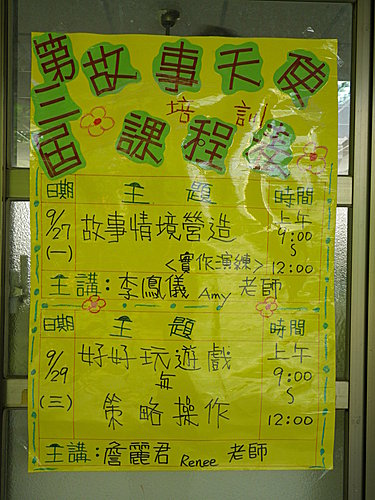 第三屆
故事天使
培訓
課程表
日期 主題 時間
9/27 (一) 故事情境營造 <實作演練> 上午 9:00 ~ 12:00
主講:李鳳儀 Amy 老師
日期 主題 時間
9/29 (三) 好好玩遊戲 無 策略操作 上午 9:00 ~ 12:00
主講:詹麗君 Renee 老師